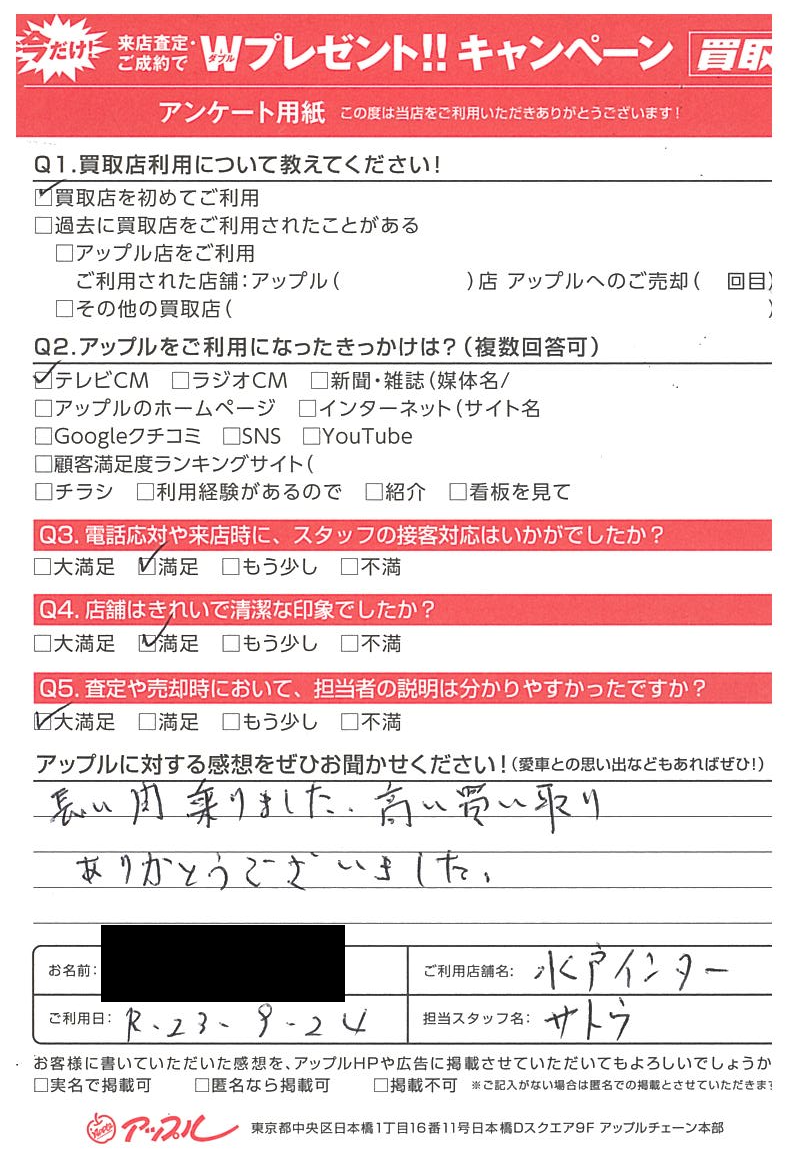 今だけ! 来店査定・ご成約で Wダブルプレゼント!! キャンペーン 買取
アンケート用紙 この度は当店をご利用いただきありがとうございます!
Q1.買取店利用について教えてください!
☑買取店を初めてご利用
□過去に買取店をご利用されたことがある
□アップル店をご利用
ご利用された店舗:アップル( )店 アップルへのご売却( 回目)
□その他の買取店( )
Q2.アップルをご利用になったきっかけは?(複数回答可)
☑テレビCM □ラジオCM □新聞・雑誌(媒体名/
□アップルのホームページ □インターネット(サイト名
□Googleクチコミ □SNS □YouTube
□顧客満足度ランキングサイト(
□チラシ □利用経験があるので □紹介 □看板を見て
Q3. 電話応対や来店時に、スタッフの接客対応はいかがでしたか?
□大満足 ☑満足 □もう少し □不満
Q4. 店舗はきれいで清潔な印象でしたか?
□大満足 ☑満足 □もう少し □不満
Q5. 査定や売却時において、担当者の説明は分かりやすかったですか?
☑大満足 □満足 □もう少し □不満
アップルに対する感想をぜひお聞かせください!(愛車との思い出などもあればぜひ!)
長い間乗りました、高い買い取り
ありがとうございました。
お名前: ご利用店舗名: 水戸インター
ご利用日: R.23.9.24 担当スタッフ名: サトウ
お客様に書いていただいた感想を、アップルHPや広告に掲載させていただいてもよろしいでしょうか
□実名で掲載可 □匿名なら掲載可 □掲載不可 ※ご記入がない場合は匿名での掲載とさせていただきます
Apple アップル 東京都中央区日本橋1丁目16番11号日本橋Dスクエア9F アップルチェーン本部